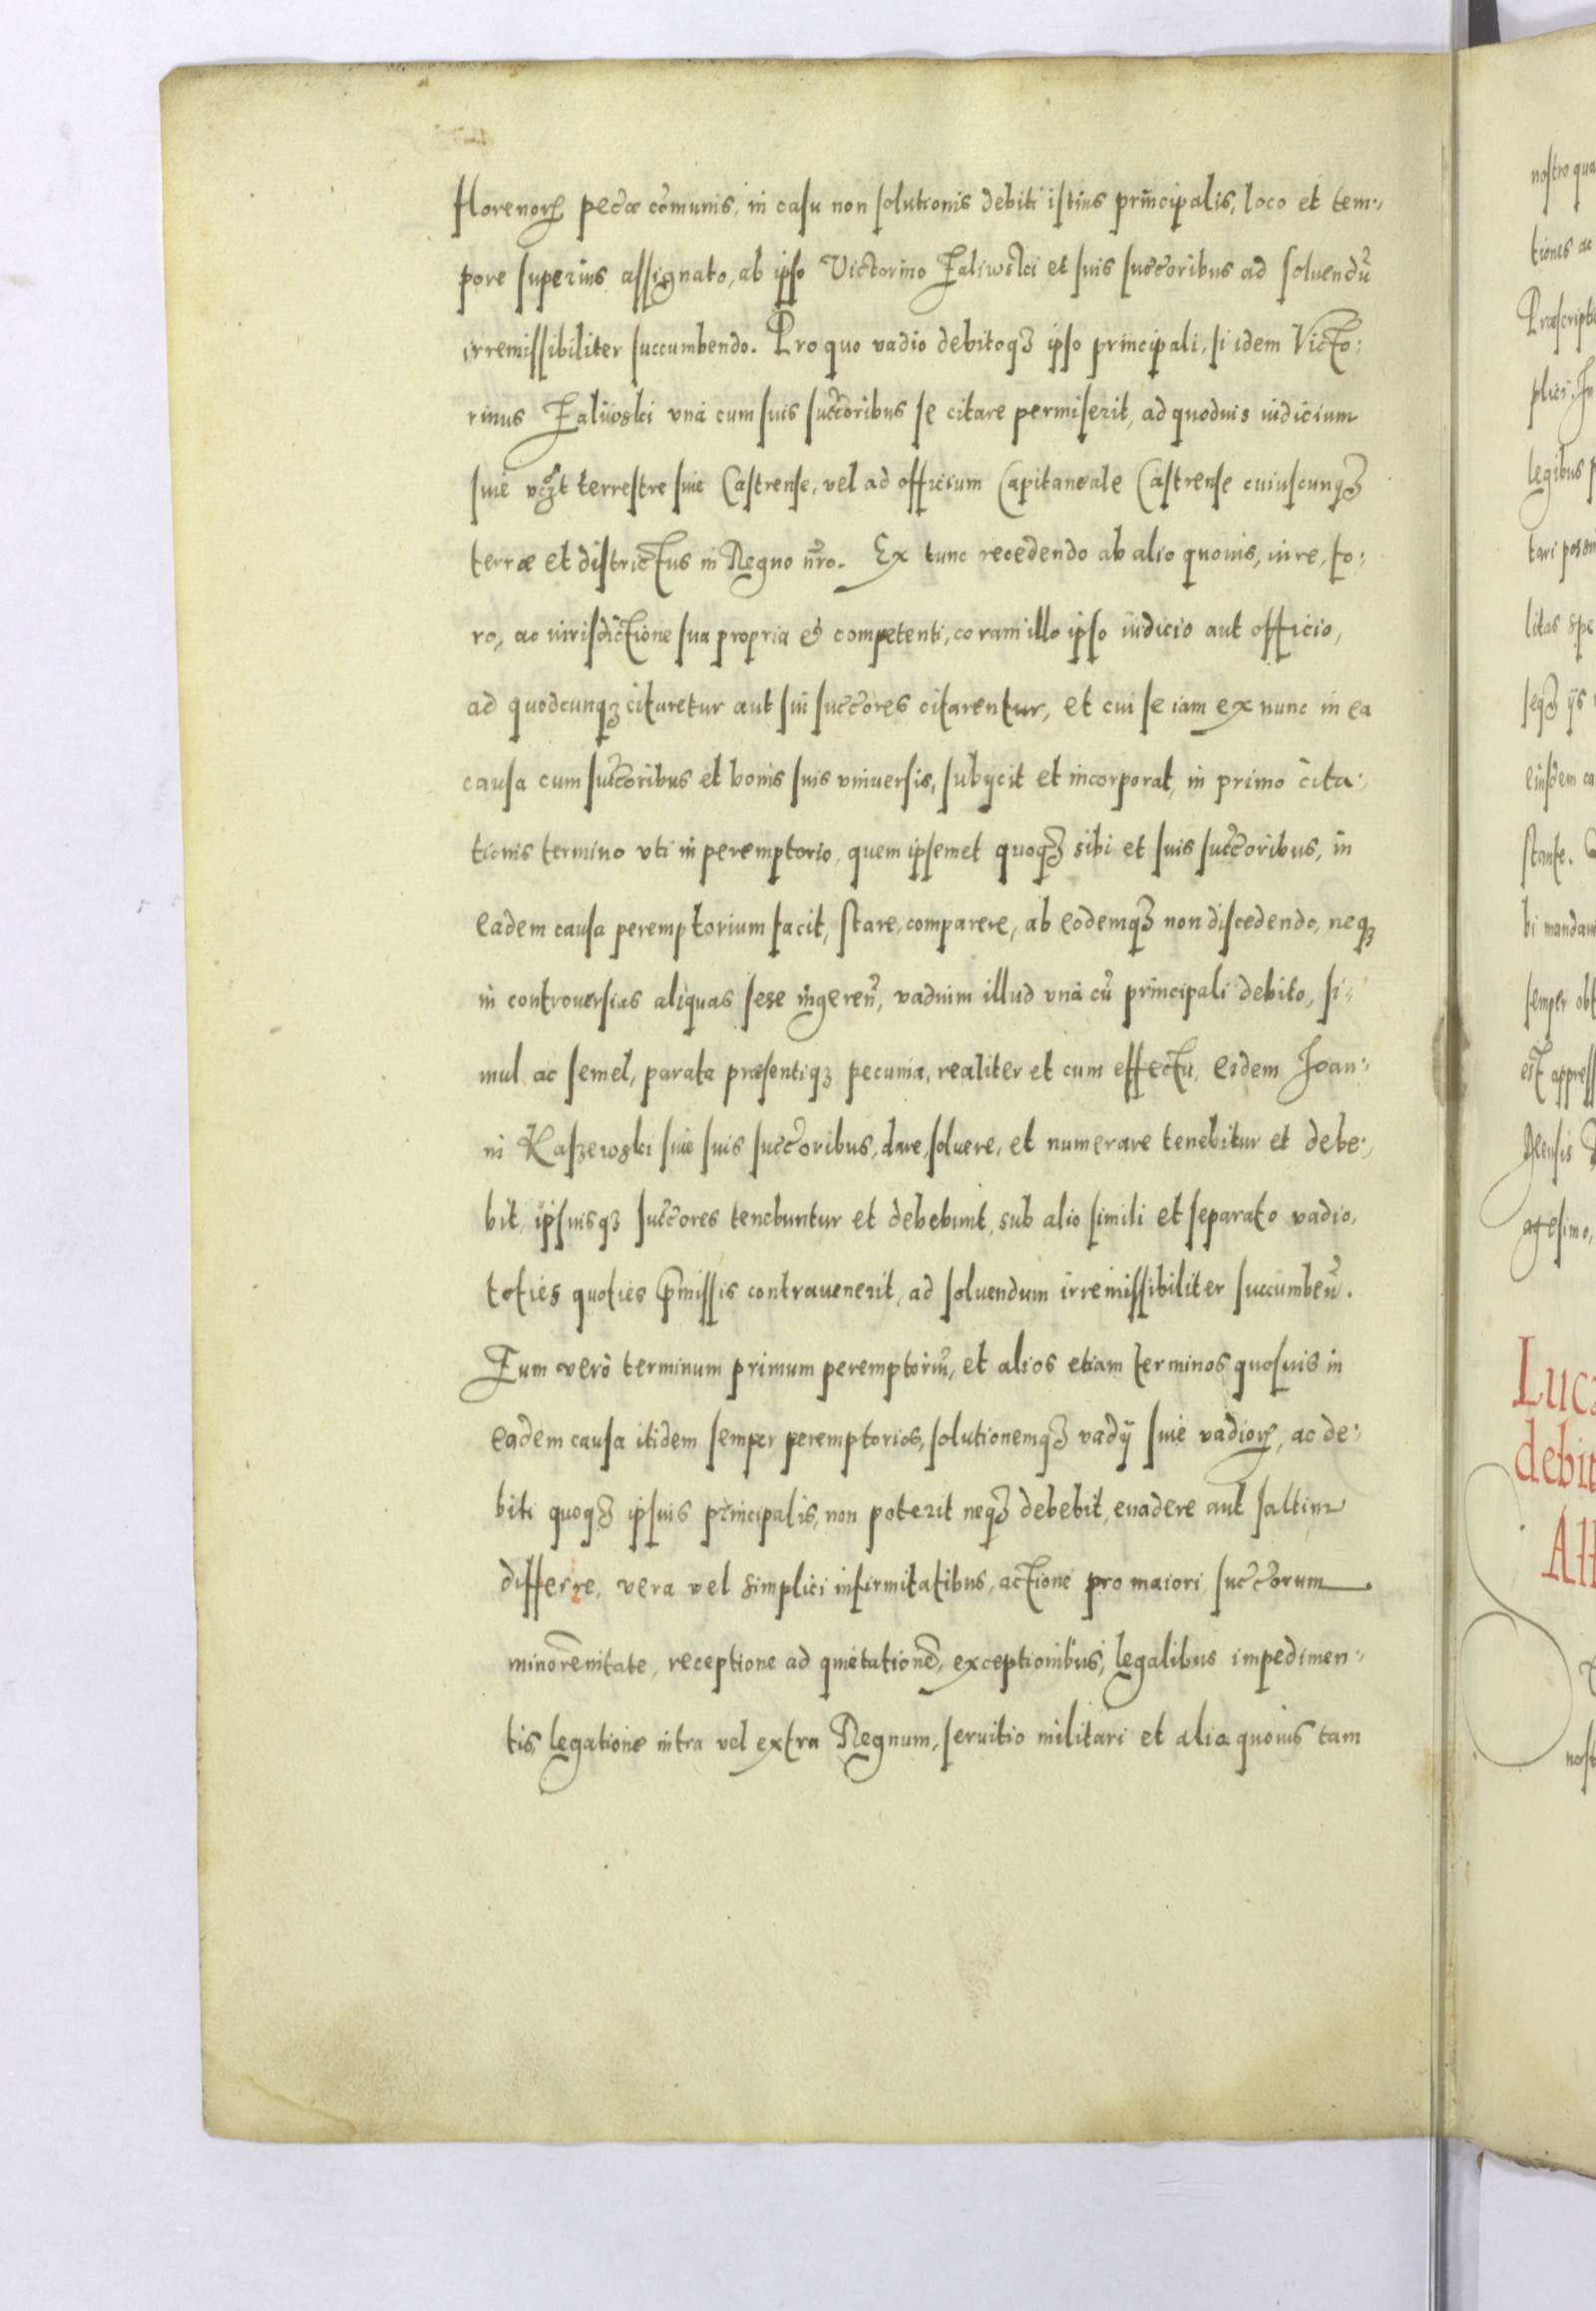 florenorꝝ pecæ cõmunis, in casu non solutionis debiti istius principalis, loco et tem-
pore superius assignato, ab ipso Victorino Zaliwski et suis succõribus ad soluendũ
irremissibiliter succumbendo. Pro quo vadio debitoqꝫ ipso principali, si idem Victo:
rinus Zaliwski vnà cum suis succõribus se citare permiserit, ad quoduis iudicium
siue terrestre siue Castrense, vel ad officium Capitaneale Castrense cuiuscunqꝫ
terræ et districtus in Regno nr̃o. Ex tunc recedendo ab alio quouis, iure, fo:
ro, ac iurisdictione sua propria & competenti, coram illo ipso iudicio aut officio,
ad quodcunqꝫ citaretur aut sui succõres citarentur, et cui se iam ex nunc in ea
causa cum succõribus et bonis suis vniuersis, subijcit et incorporat, in primo cita:
tionis termino vti in peremptorio, quem ipsemet quoqꝫ sibi et suis succõribus, in
eadem causa peremptorium facit, stare, comparere, ab eodemqꝫ non discedendo, neqꝫ
in controuersias aliquas sese ingereñ, vadium illud vnà cũ principali debito, si-
mul ac semel, parata præsentiqꝫ pecunia, realiter et cum effectu, eidem Joan:
ni Kaszewski siue suis succõribus, dare, soluere, et numerare tenebitur et debe:
bit, ipsiusqꝫ succõres tenebuntur et debebunt, sub alio simili et separato vadio,
toties quoties p̃missis contrauenerit, ad soluendum irremissibiliter succumbeñ.
Eum verò terminum primum peremptoriũ, et alios etiam terminos quosuis in
eadem causa itidem semper peremptorios, solutionemqꝫ vadij siue vadiorꝝ, ac de:
biti quoqꝫ ipsius principalis, non poterit neqꝫ debebit, euadere aut saltim
differre, vera vel simplici infirmitatibus, actione pro maiori, succõrum
minorẽnitate, receptione ad quietationẽ, exceptionibus, legalibus impedimen-
tis, legatione intra vel extra Regnum, seruitio militari et alia quouis tam
nostro qua
tiones ac
Præscripti
legibus p
litas spe
seqꝫ ijs
eiusdem ca
stante.
bi mandau
semper obt
est appress
agesimo,
Luca
debit